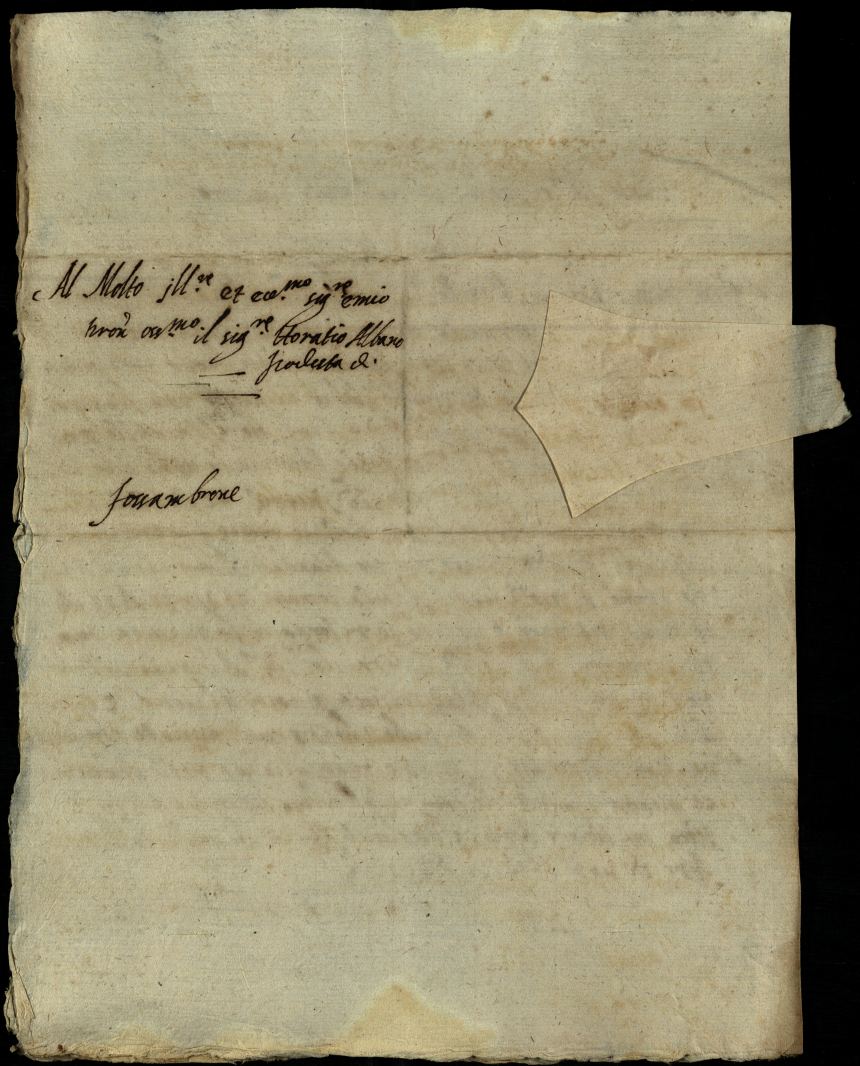 Al Molto jll.re et ecc.mo sig.re e mio
pron oss.mo il sig.re Horatio Albano
Podesta di
fossambrone